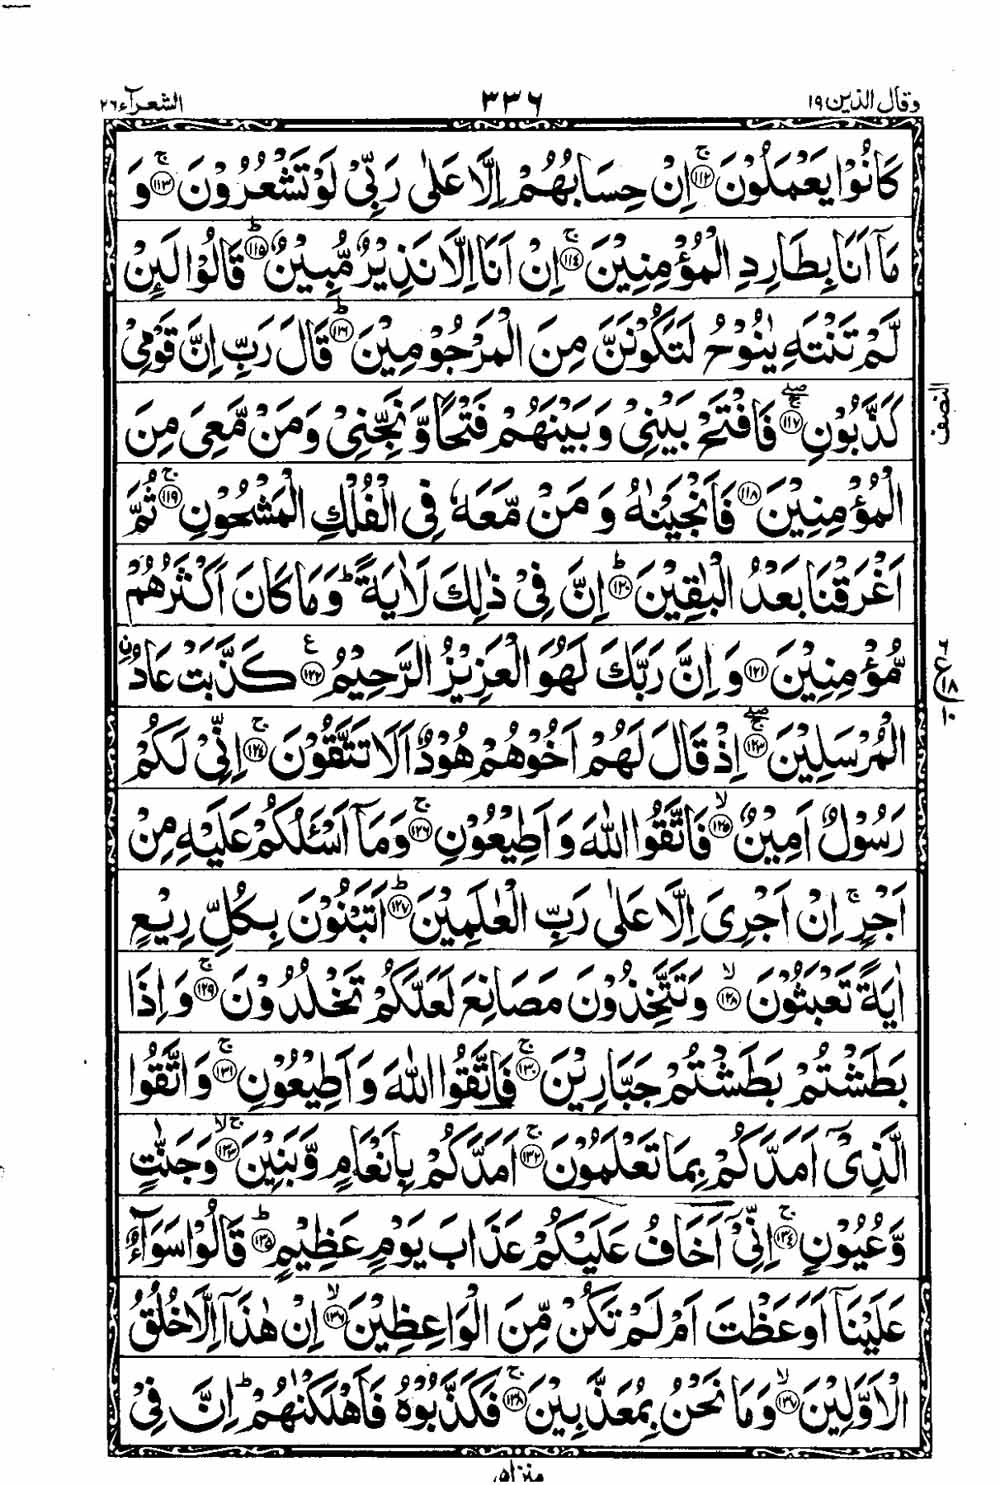 وقال الذین ١٩ ٣٣٦ الشعرآء ٢٦
كَانُوْا يَعْمَلُوْنَ ۚ﴿١١٢﴾ اِنْ حِسَابُهُمْ اِلَّا عَلٰى رَبِّىْ لَوْ تَشْعُرُوْنَ ۚ﴿١١٣﴾ وَ
مَاۤ اَنَا بِطَارِدِ الْمُؤْمِنِيْنَ ۚ﴿١١٤﴾ اِنْ اَنَا اِلَّا نَذِيْرٌ مُّبِيْنٌ ؕ﴿١١٥﴾ قَالُوْا لَىِٕنْ
لَّمْ تَنْتَهِ يٰنُوْحُ لَتَكُوْنَنَّ مِنَ الْمَرْجُوْمِيْنَ ؕ﴿١١٦﴾ قَالَ رَبِّ اِنَّ قَوْمِىْ
كَذَّبُوْنِ ۚۖ﴿١١٧﴾ فَافْتَحْ بَيْنِىْ وَبَيْنَهُمْ فَتْحًا وَّنَجِّنِىْ وَمَنْ مَّعِىَ مِنَ
النصف
الْمُؤْمِنِيْنَ ﴿١١٨﴾ فَاَنْجَيْنٰهُ وَمَنْ مَّعَهٗ فِى الْفُلْكِ الْمَشْحُوْنِ ۚ﴿١١٩﴾ ثُمَّ
اَغْرَقْنَا بَعْدُ الْبٰقِيْنَ ؕ﴿١٢٠﴾ اِنَّ فِىْ ذٰلِكَ لَاٰيَةً ؕ وَمَا كَانَ اَكْثَرُهُمْ
مُّؤْمِنِيْنَ ﴿١٢١﴾ وَاِنَّ رَبَّكَ لَهُوَ الْعَزِيْزُ الرَّحِيْمُ ﴿١٢٢﴾ ع كَذَّبَتْ عَادُ ۨ
٦ ع ١٨ ١٠
الْمُرْسَلِيْنَ ۚۖ﴿١٢٣﴾ اِذْ قَالَ لَهُمْ اَخُوْهُمْ هُوْدٌ اَلَا تَتَّقُوْنَ ۚ﴿١٢٤﴾ اِنِّىْ لَكُمْ
رَسُوْلٌ اَمِيْنٌ ۙ﴿١٢٥﴾ فَاتَّقُوا اللّٰهَ وَاَطِيْعُوْنِ ۚ﴿١٢٦﴾ وَمَاۤ اَسْـَٔلُكُمْ عَلَيْهِ مِنْ
اَجْرٍ ۚ اِنْ اَجْرِىَ اِلَّا عَلٰى رَبِّ الْعٰلَمِيْنَ ؕ﴿١٢٧﴾ اَتَبْنُوْنَ بِكُلِّ رِيْعٍ
اٰيَةً تَعْبَثُوْنَ ۙ﴿١٢٨﴾ وَتَتَّخِذُوْنَ مَصَانِعَ لَعَلَّكُمْ تَخْلُدُوْنَ ۚ﴿١٢٩﴾ وَاِذَا
بَطَشْتُمْ بَطَشْتُمْ جَبَّارِيْنَ ۚ﴿١٣٠﴾ فَاتَّقُوا اللّٰهَ وَاَطِيْعُوْنِ ۚ﴿١٣١﴾ وَاتَّقُوا
الَّذِىْۤ اَمَدَّكُمْ بِمَا تَعْلَمُوْنَ ۚ﴿١٣٢﴾ اَمَدَّكُمْ بِاَنْعَامٍ وَّبَنِيْنَ ۚۙ﴿١٣٣﴾ وَجَنّٰتٍ
وَّعُيُوْنٍ ۚ﴿١٣٤﴾ اِنِّىْۤ اَخَافُ عَلَيْكُمْ عَذَابَ يَوْمٍ عَظِيْمٍ ؕ﴿١٣٥﴾ قَالُوْا سَوَآءٌ
عَلَيْنَاۤ اَوَعَظْتَ اَمْ لَمْ تَكُنْ مِّنَ الْوَاعِظِيْنَ ۙ﴿١٣٦﴾ اِنْ هٰذَاۤ اِلَّا خُلُقُ
الْاَوَّلِيْنَ ۙ﴿١٣٧﴾ وَمَا نَحْنُ بِمُعَذَّبِيْنَ ۚ﴿١٣٨﴾ فَكَذَّبُوْهُ فَاَهْلَكْنٰهُمْ ؕ اِنَّ فِىْ
منزل ۵